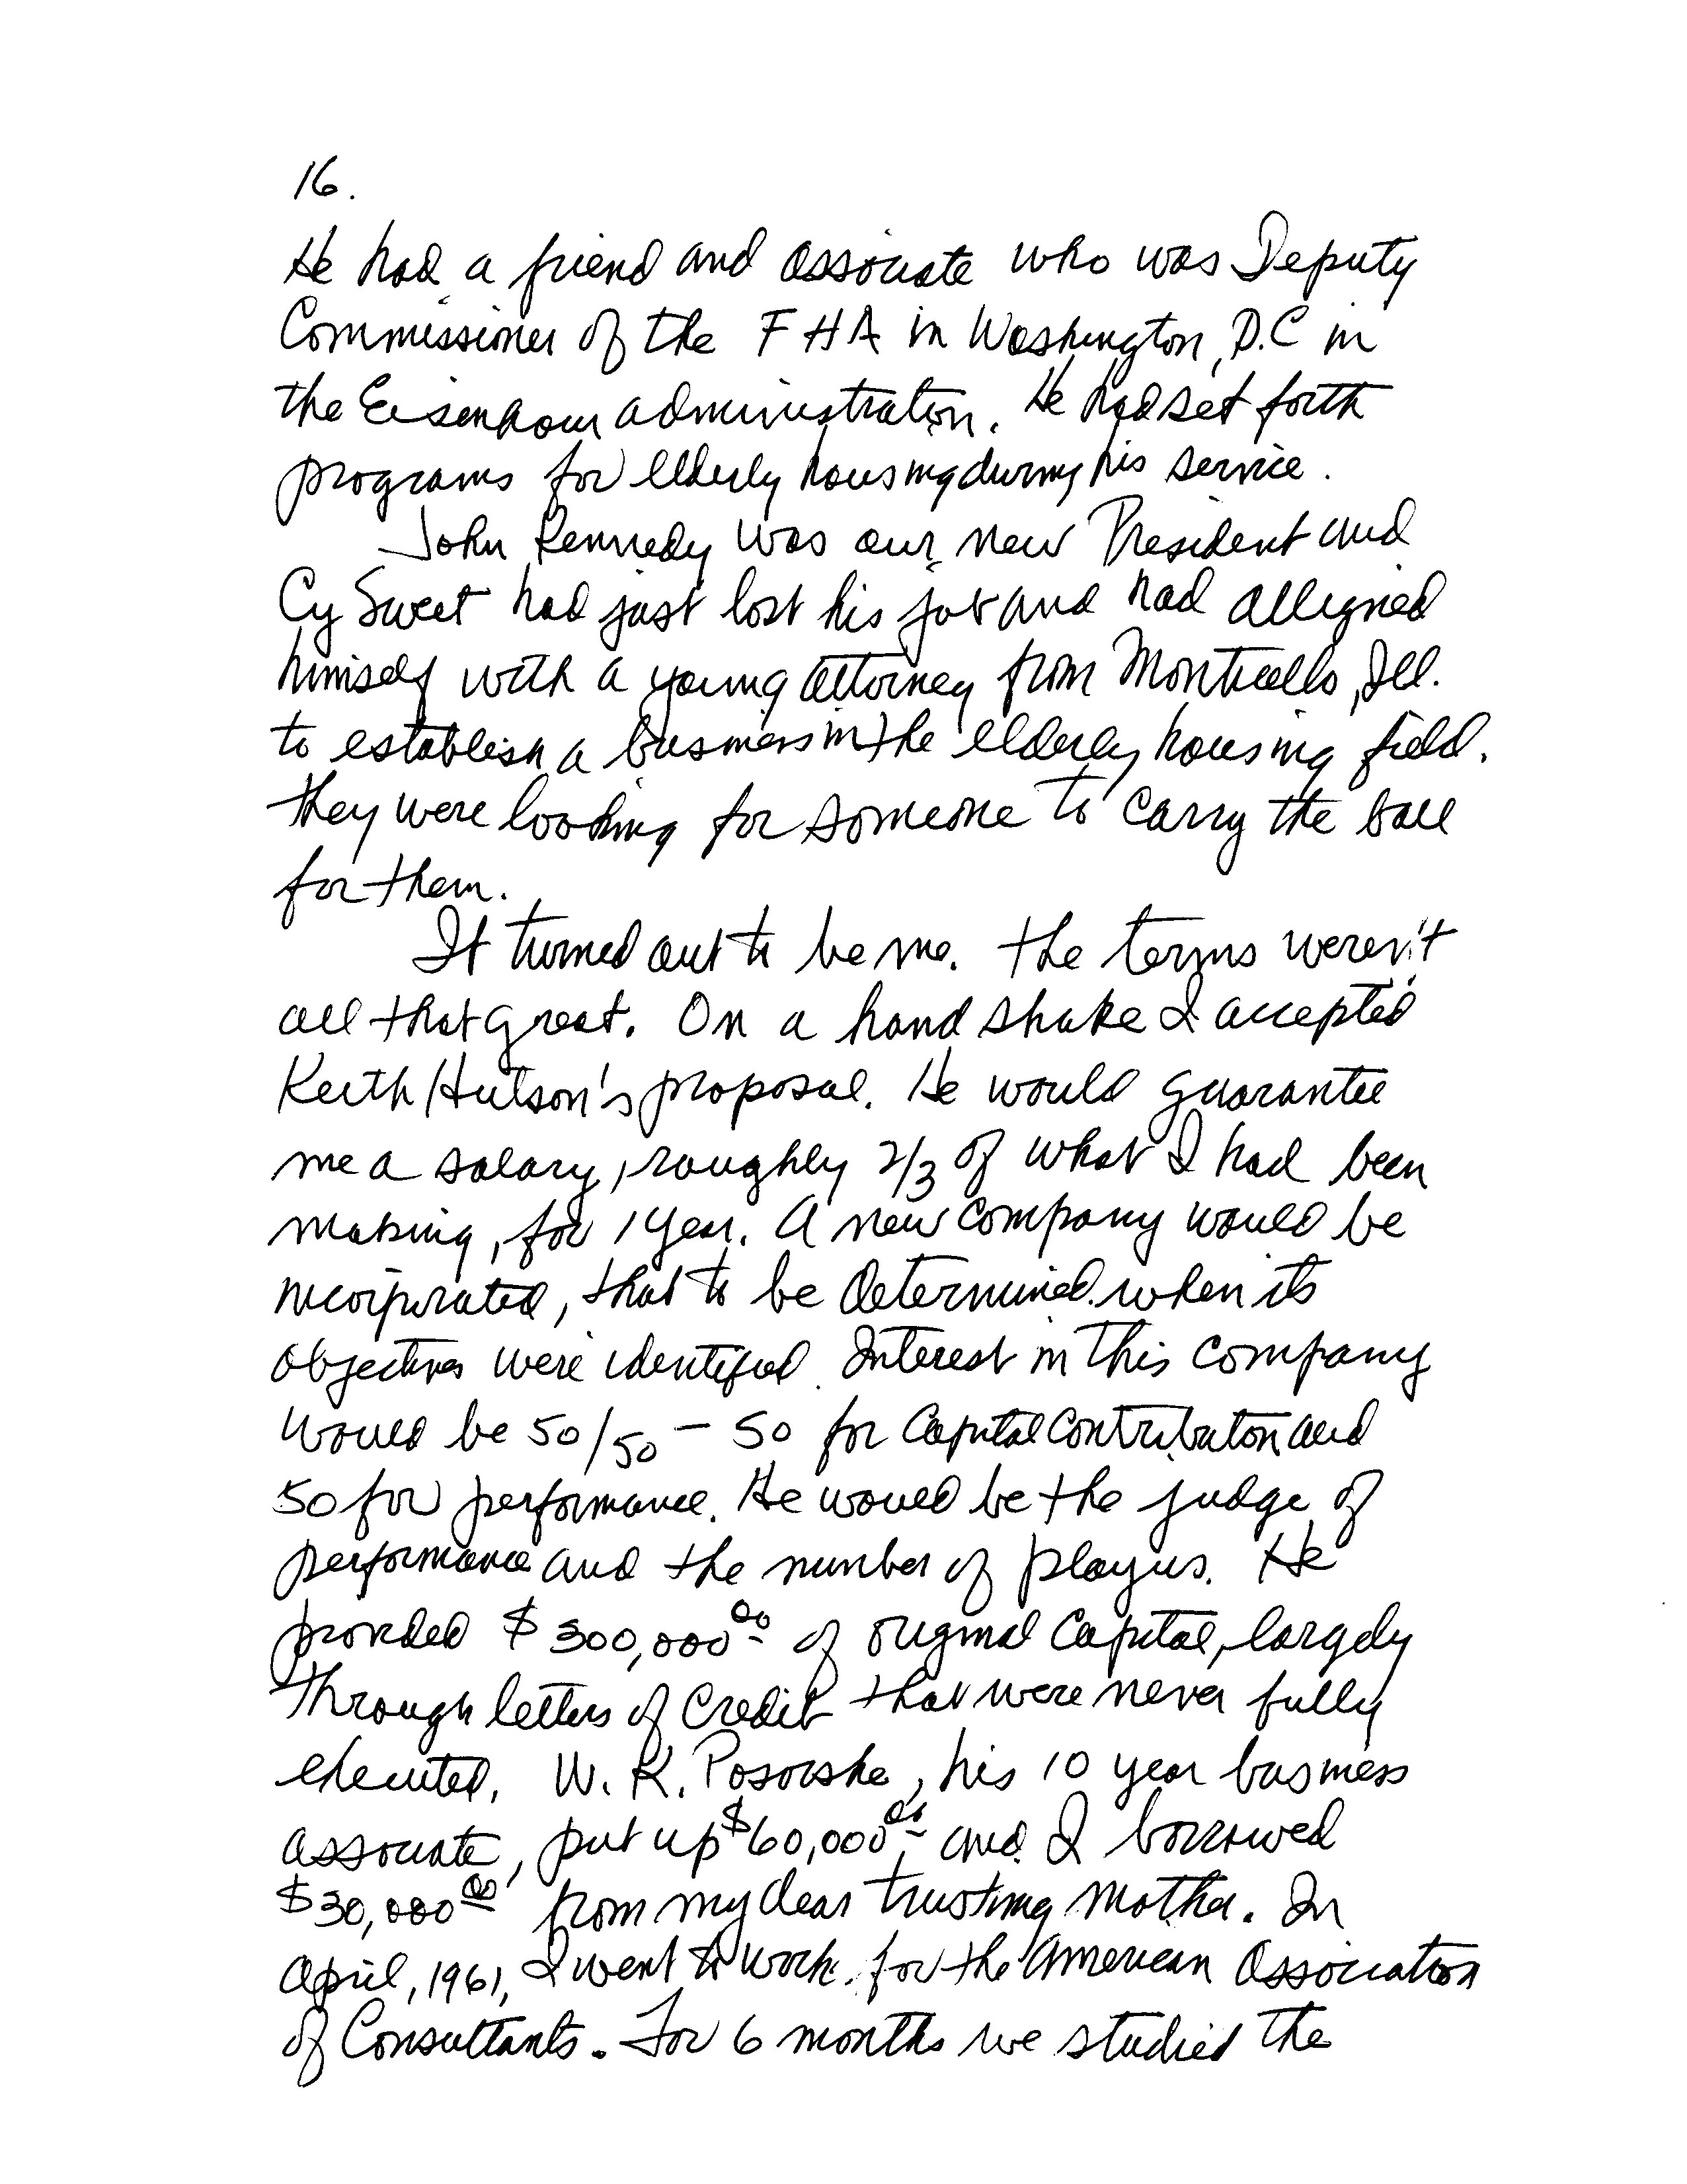 16.
He had a friend and associate who was Deputy
Commissioner of the FHA in Washington, D.C in
the Eisenhower administration. He had set forth
programs for elderly housing during his service.
John Kennedy was our new President and
Cy Sweet had just lost his job and had alligned
himself with a young attorney from Monticello, Ill.
to establish a business in the elderly housing field.
They were looking for someone to carry the ball
for them.
It turned out to be me. The terms weren't
all that great. On a hand shake I accepted
Keith Hutson's proposal. He would guarantee
me a salary, roughly 2/3 of what I had been
making, for 1 year. A new company would be
incorporated, that to be determined when its
objectives were identified. Interest in this company
would be 50/50 - 50 for capital contribution and
50 for performance. He would be the judge of
performance and the number of players. He
provided $300,000.00 of original capital, largely
through letters of credit that were never fully
executed. W. K. his 10 year business
associate, put up $60,000.00 and I borrowed
$30,000.00 from my dear trusting mother. In
April, 1961, I went to work for the American Association
of Consultants. For 6 months we studied the